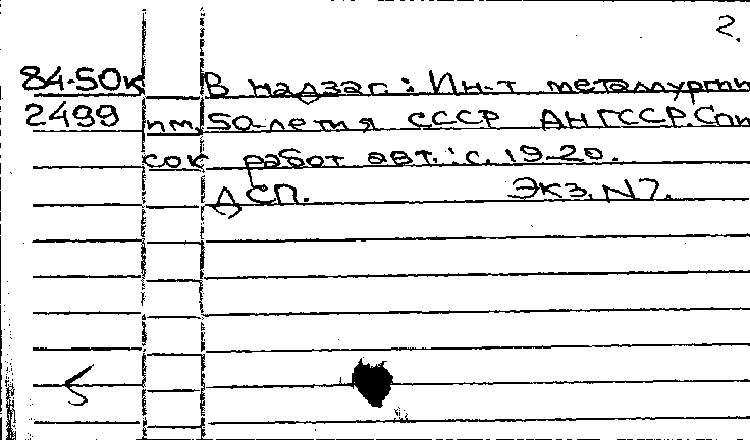 2.
84-50к В надзаг.: Ин-т металлургии
2499 им. 50-летия СССР АН ГССР. Спи
сок работ авт.: с. 19-20.
ДСП. Экз. N7.